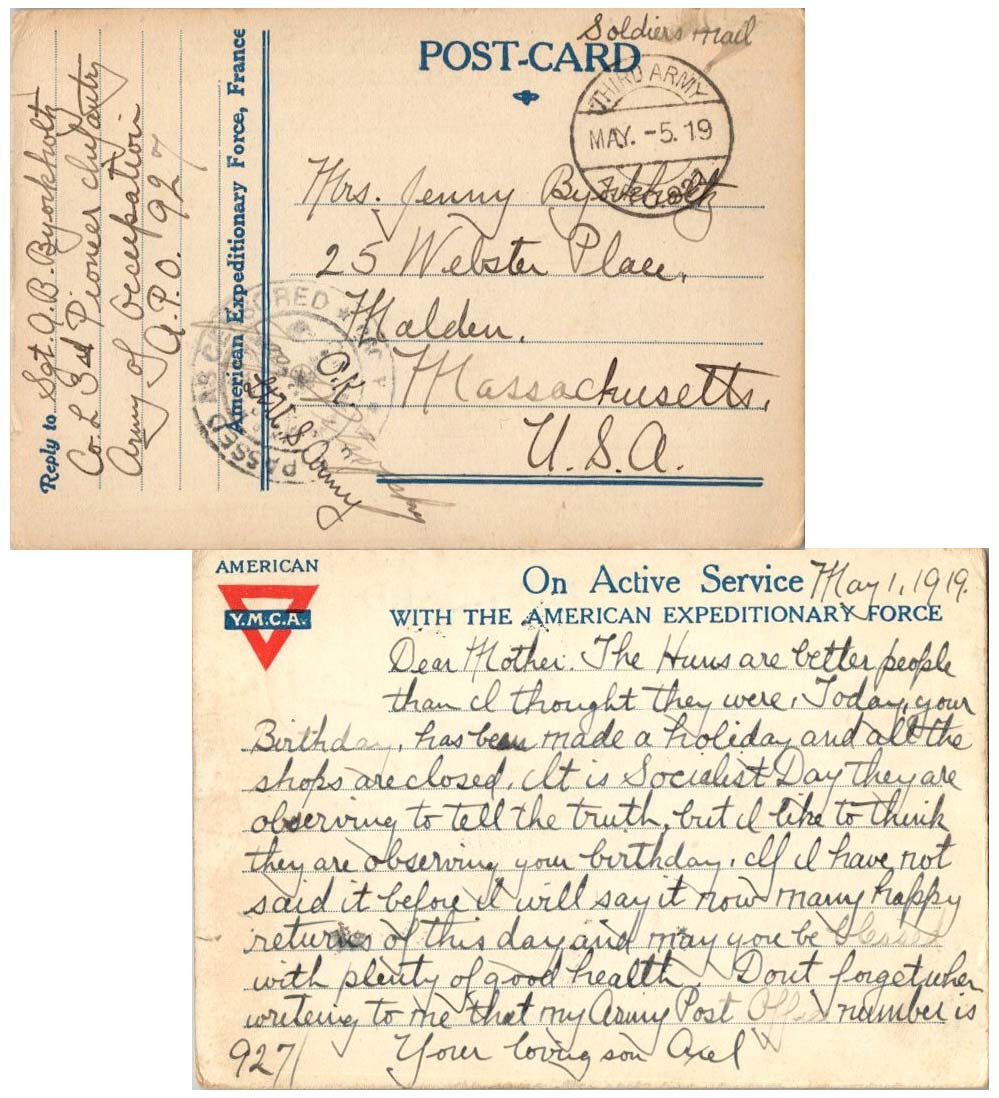 Soldiers Mail
POST-CARD
THIRD ARMY
MAY. -5. 19
Mrs. Jenny
25 Webster Place,
Malden,
Massachusetts,
U. S. A.
American Expeditionary Force, France
Reply to Sgt. A. B. Byorkholtz
Co. L 3rd Pioneer Infantry
Army of Occupation
A. P. O. 927
PASSED AS CENSORED
O.K.
U.S Army
AMERICAN
Y.M.C.A.
On Active Service May 1, 1919.
WITH THE AMERICAN EXPEDITIONARY FORCE
Dear Mother. The Huns are better people
than I thought they were. Today, your
Birthday, has been made a holiday and all the
shops are closed. It is Socialist Day they are
observing to tell the truth, but I like to think
they are observing your birthday. If I have not
said it before I will say it now many happy
returns of this day and may you be blessed
with plenty of good health. Dont forget when
writeing to me that my Army Post Office number is
927 Your loving son Axel